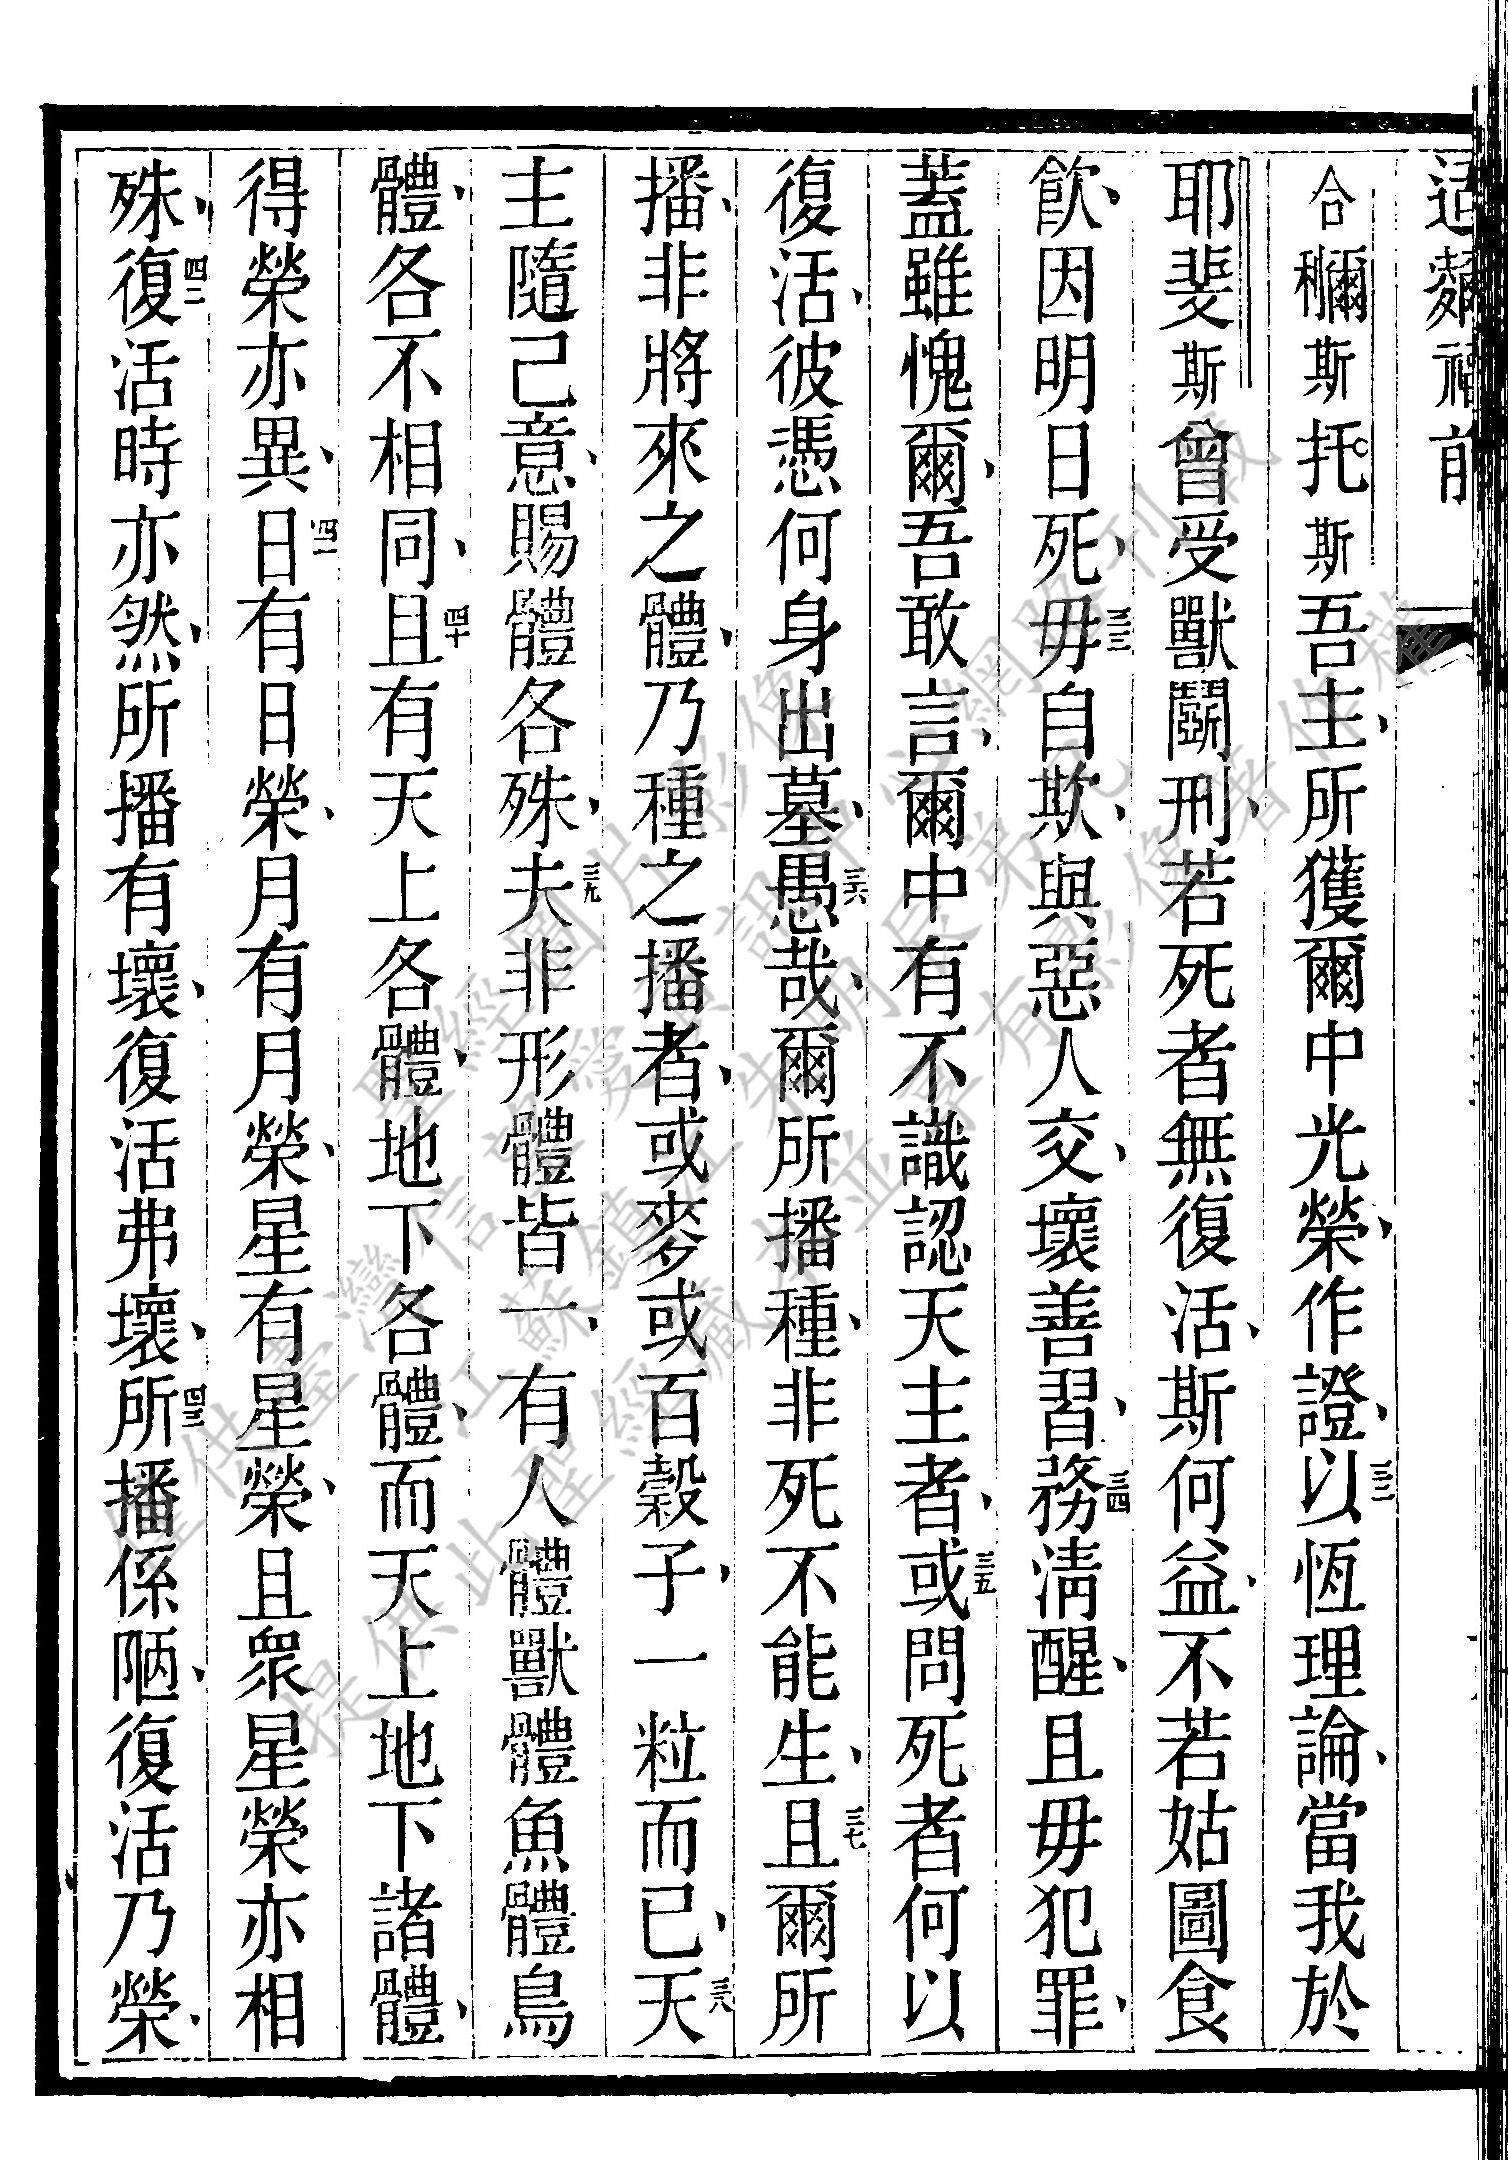 合穪斯托斯吾主、所獲爾中光榮、作證、三二以恆理論、當我於
耶斐斯曾受獸鬬刑、若死者無復活、斯何益、不若姑圖食
飲、因明日死、三三毋自欺、與惡人交、壞善習、三四務淸醒、且毋犯罪、
蓋雖愧爾、吾敢言、爾中有不識認天主者、三五或問死者何以
復活、彼憑何身出墓、三六愚哉、爾所播種、非死不能生、三七且爾所
播、非將來之體、乃種之播者、或麥或百穀子、一粒而已、三八天
主隨己意、賜體各殊、三九夫非形體皆一、有人體獸體魚體鳥
體、各不相同、四十且有天上各體、地下各體、而天上地下諸體、
得榮亦異、四一日有日榮、月有月榮、星有星榮、且眾星榮亦相
殊、四二復活時亦然、所播有壞、復活弗壞、四三所播係陋、復活乃榮、